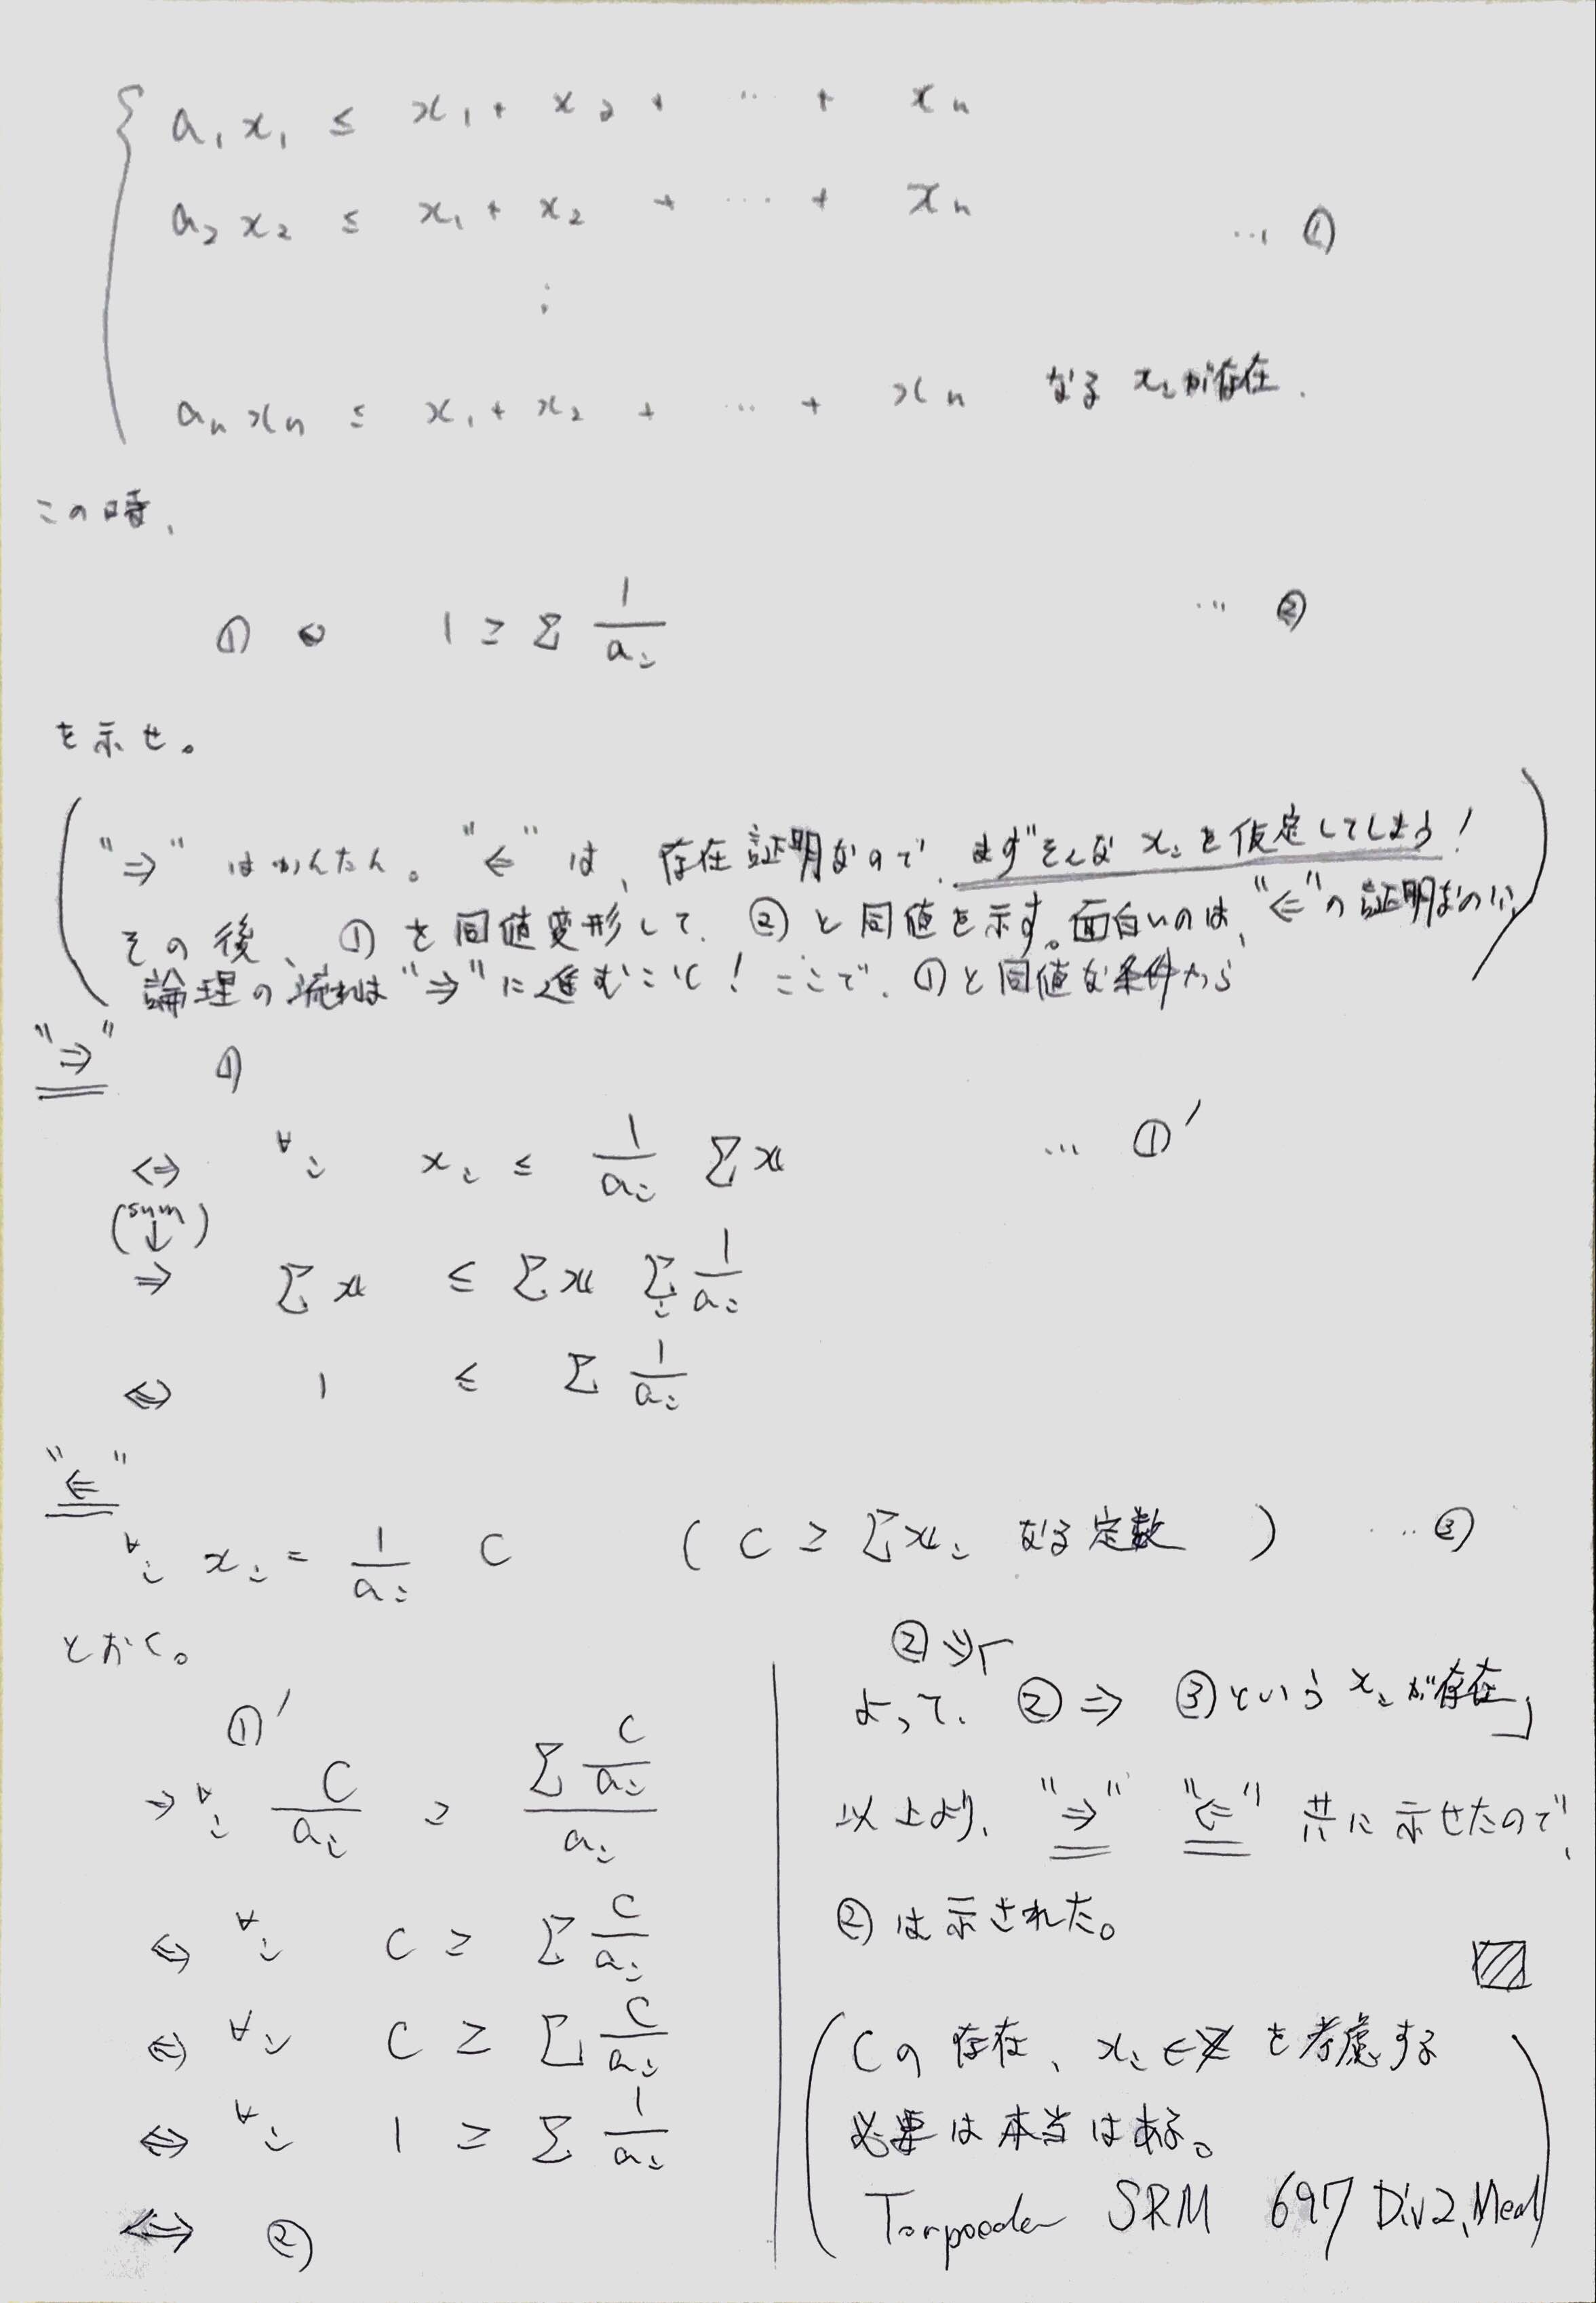 a₁x₁ ≤ x₁ + x₂ + … + xₙ
a₂x₂ ≤ x₁ + x₂ + … + xₙ … ①
⋮
aₙxₙ ≤ x₁ + x₂ + … + xₙ なる xᵢが存在.
この時、
① ⇔ 1 ≥ Σ 1/aᵢ … ②
を示せ。
( "⇒" はかんたん。 "⇐" は、存在証明なので、まずそんな xᵢ を仮定してしまう!
その後、①を同値変形して、②と同値を示す。面白いのは、"⇐"の証明なのに、
論理の流れは"⇒"に進むこと! ここで、①と同値な条件から )
"⇒" ①
⇔ ∀i xᵢ ≤ 1/aᵢ Σx … ①′
(sum ↓)
⇒ Σx ≤ Σx Σᵢ 1/aᵢ
⇔ 1 ≤ Σ 1/aᵢ
"⇐"
∀i xᵢ = 1/aᵢ C ( C ≥ Σxᵢ なる定数 ) … ③
とおく。
①′
⇒ ∀i C/aᵢ ≥ (Σ C/aᵢ)/aᵢ
⇔ ∀i C ≥ Σ C/aᵢ
⇔ ∀i C ≥ Σ C/aᵢ
⇔ ∀i 1 ≥ Σ 1/aᵢ
⇔ ②
②
よって、②⇒ ③という xᵢ が存在」
以上より、"⇒" "⇐" 共に示せたので、
②は示された。
( Cの存在、xᵢ ∈ Z を考慮する
必要は本当はある。
SRM 697 Div2, Med )